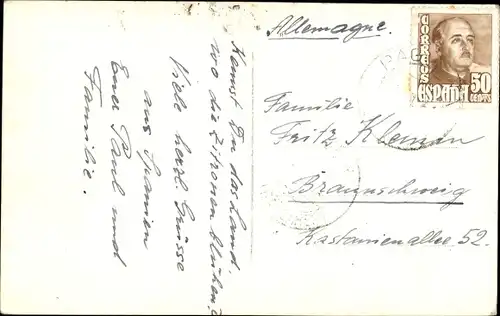 Kennst Du das Land.
wo die Zitronen blühen?
Viele herzl. Grüsse
aus Spanien
Euer Paul und
Familie.
Allemagne.
CORREOS
ESPAÑA
50
CENTS
Familie
Fritz Kleman
Braunschweig
Kastanienallee 52.